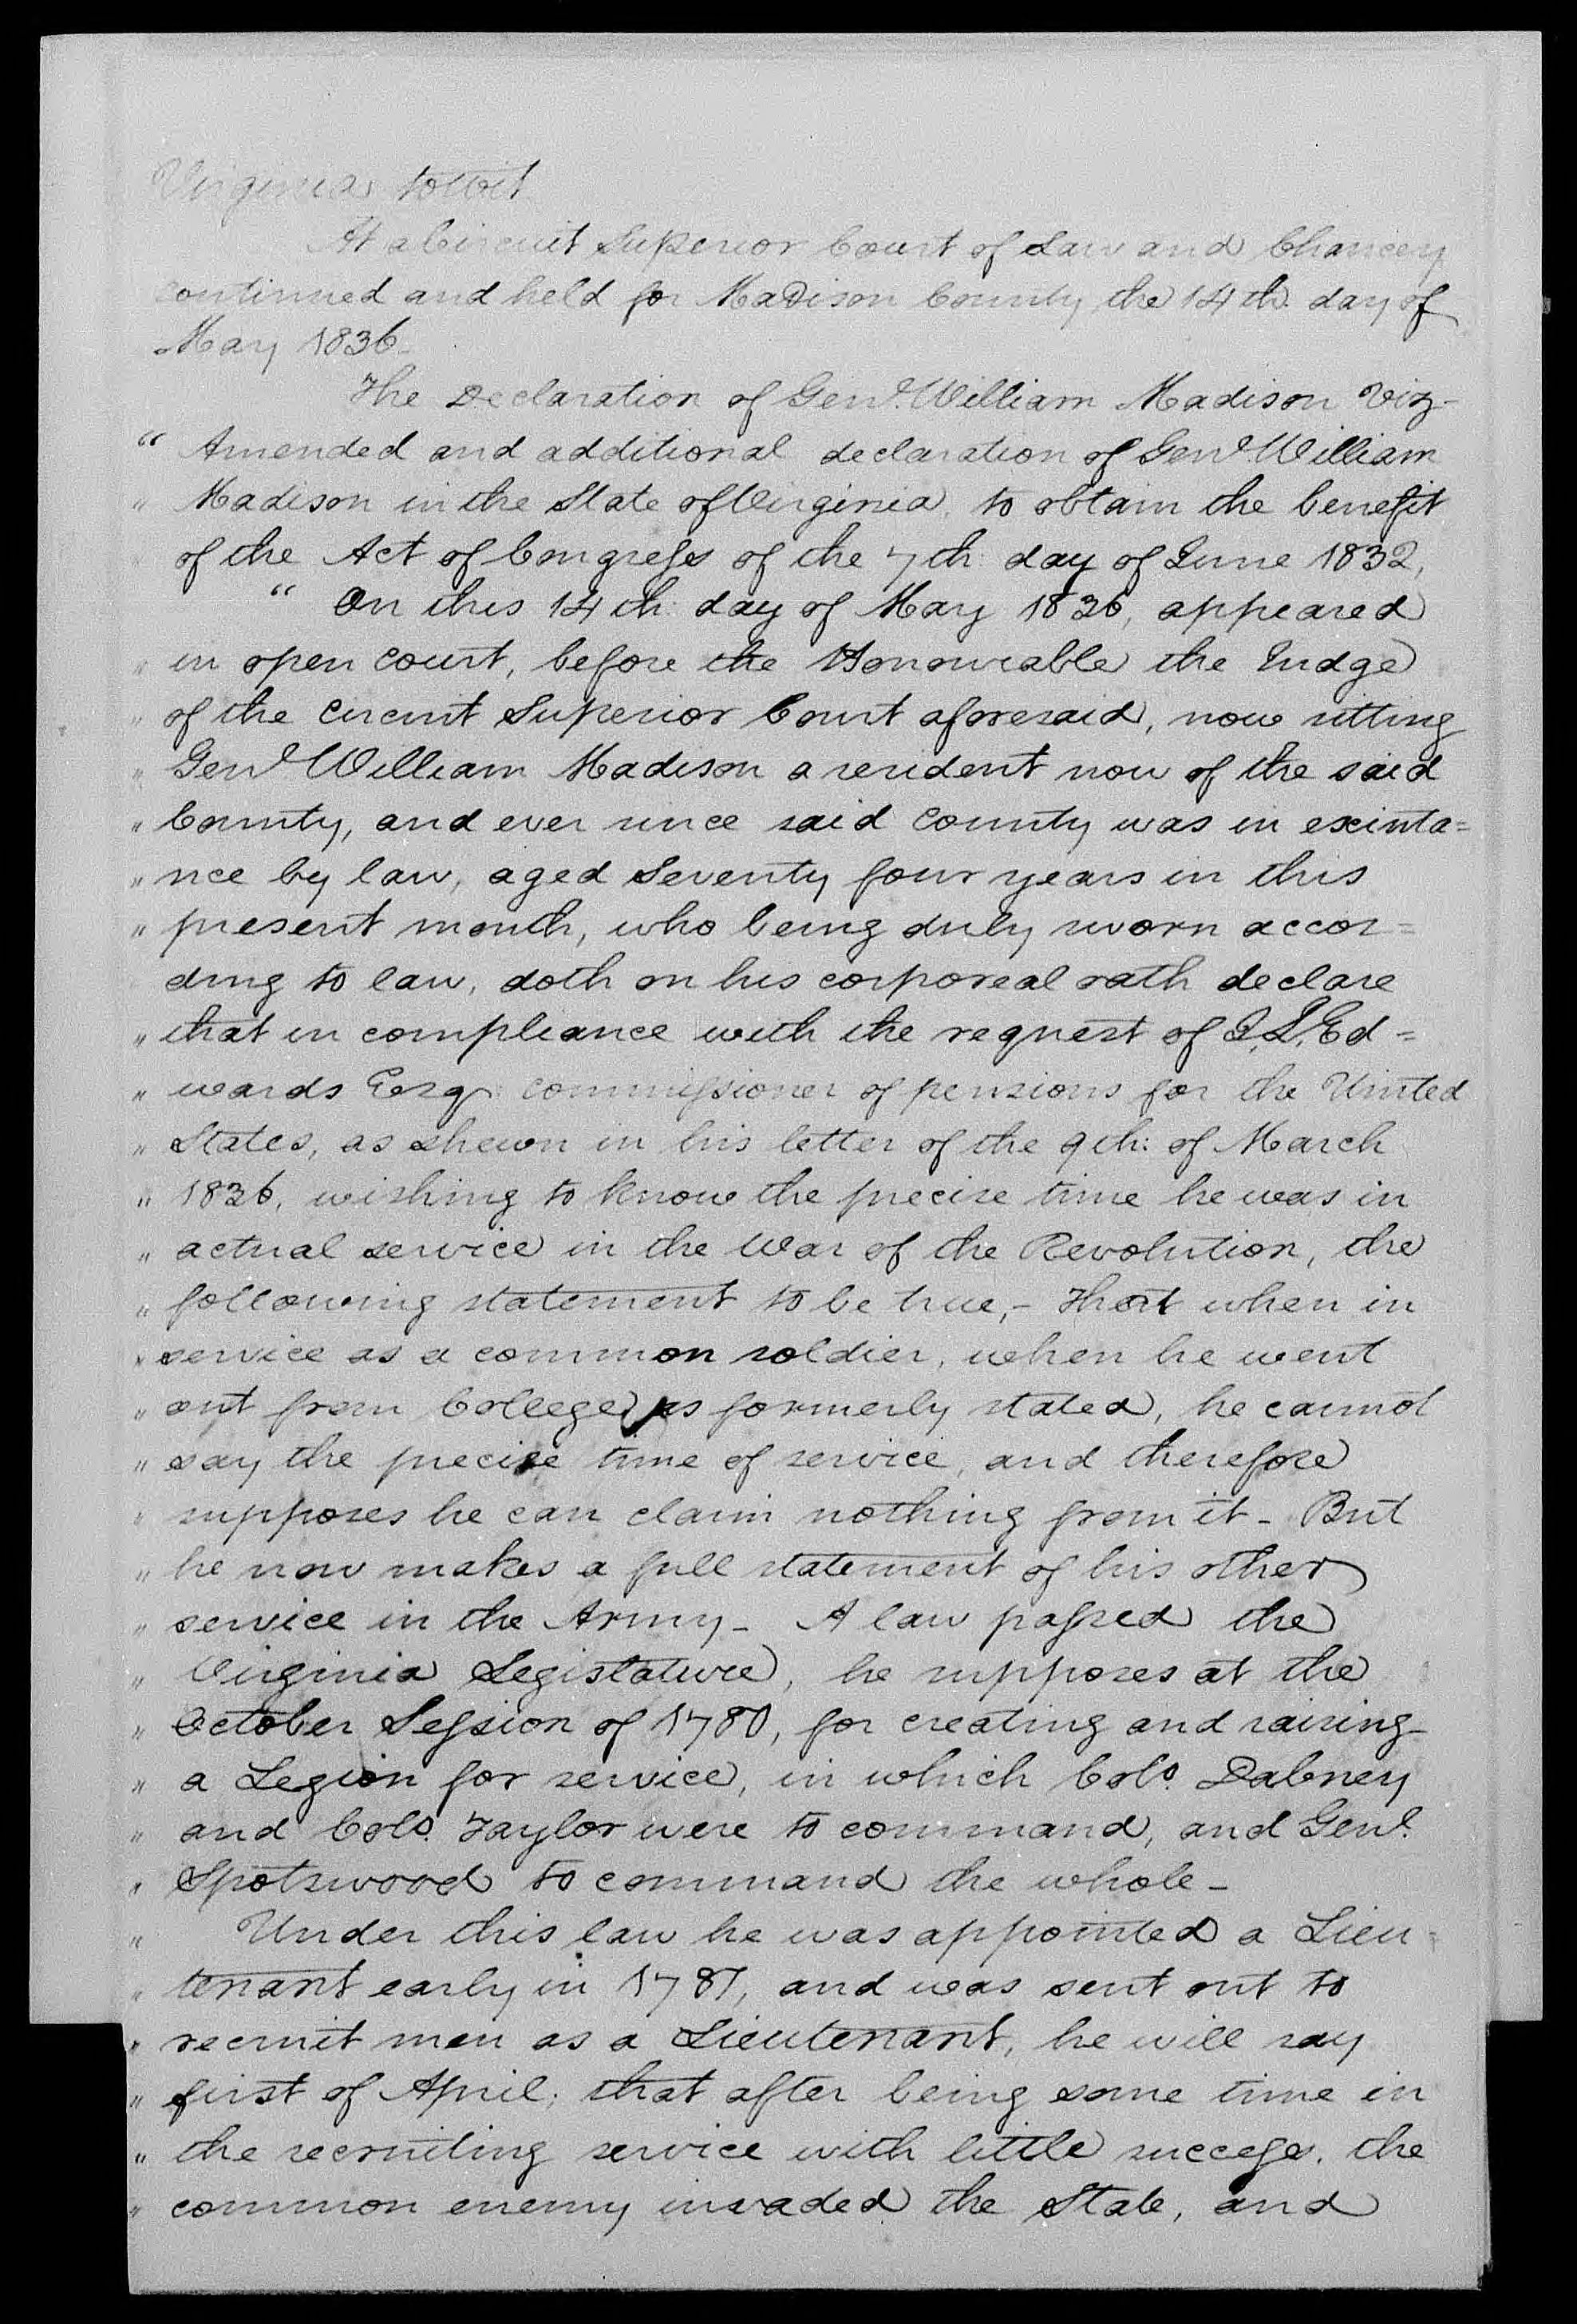 Virginia towit
At a Circuit Superior Court of Law and Chancery
continued and held for Madison County the 14th day of
May 1836_
The Declaration of Genl. William Madison Viz-
" Amended and additional declaration of Genl. William
" Madison in the State of Virginia, to obtain the benefit
of the Act of Congress of the 7th day of June 1832,
" On this 14th: day of May 1836, appeared
" in open court, before the Honourable the Judge
" of the Circuit Superior Court aforesaid, now sitting
" Genl William Madison a resident now of the said
" County, and ever since said County was in exista=
" nce by law, aged Seventy four years in this
" present month, who being duly sworn accor=
ding to law, doth on his corporeal oath declare
" that in compliance with the request of J. L. Ed=
" wards Esqr: commissioner of pensions for the United
" States, as shewn in his letter of the 9th: of March
" 1836, wishing to know the precise time he was in
" actual service in the War of the Revolution, the
" following statement to be true,- That when in
" service as a common soldier, when he went
" out from College, as formerly stated, he cannot
" say the precise time of service, and therefore
" supposes he can claim nothing from it_ But
" he now makes a full statement of his other
" service in the Army_ A law passed the
" Virginia Legislature, he supposes at the
" October Session of 1780, for creating and raising_
" a Legion for service, in which Colo. Dabney
" and Colo. Taylor were to command, and Genl.
" Spotswood to command the whole_
" Under this law he was appointed a Lieu=
" tenant early in 1781, and was sent out to
" recruit men as a Lieutenant, he will say
" first of April; that after being some time in
" the recruiting service with little success, the
" common enemy invaded the State, and